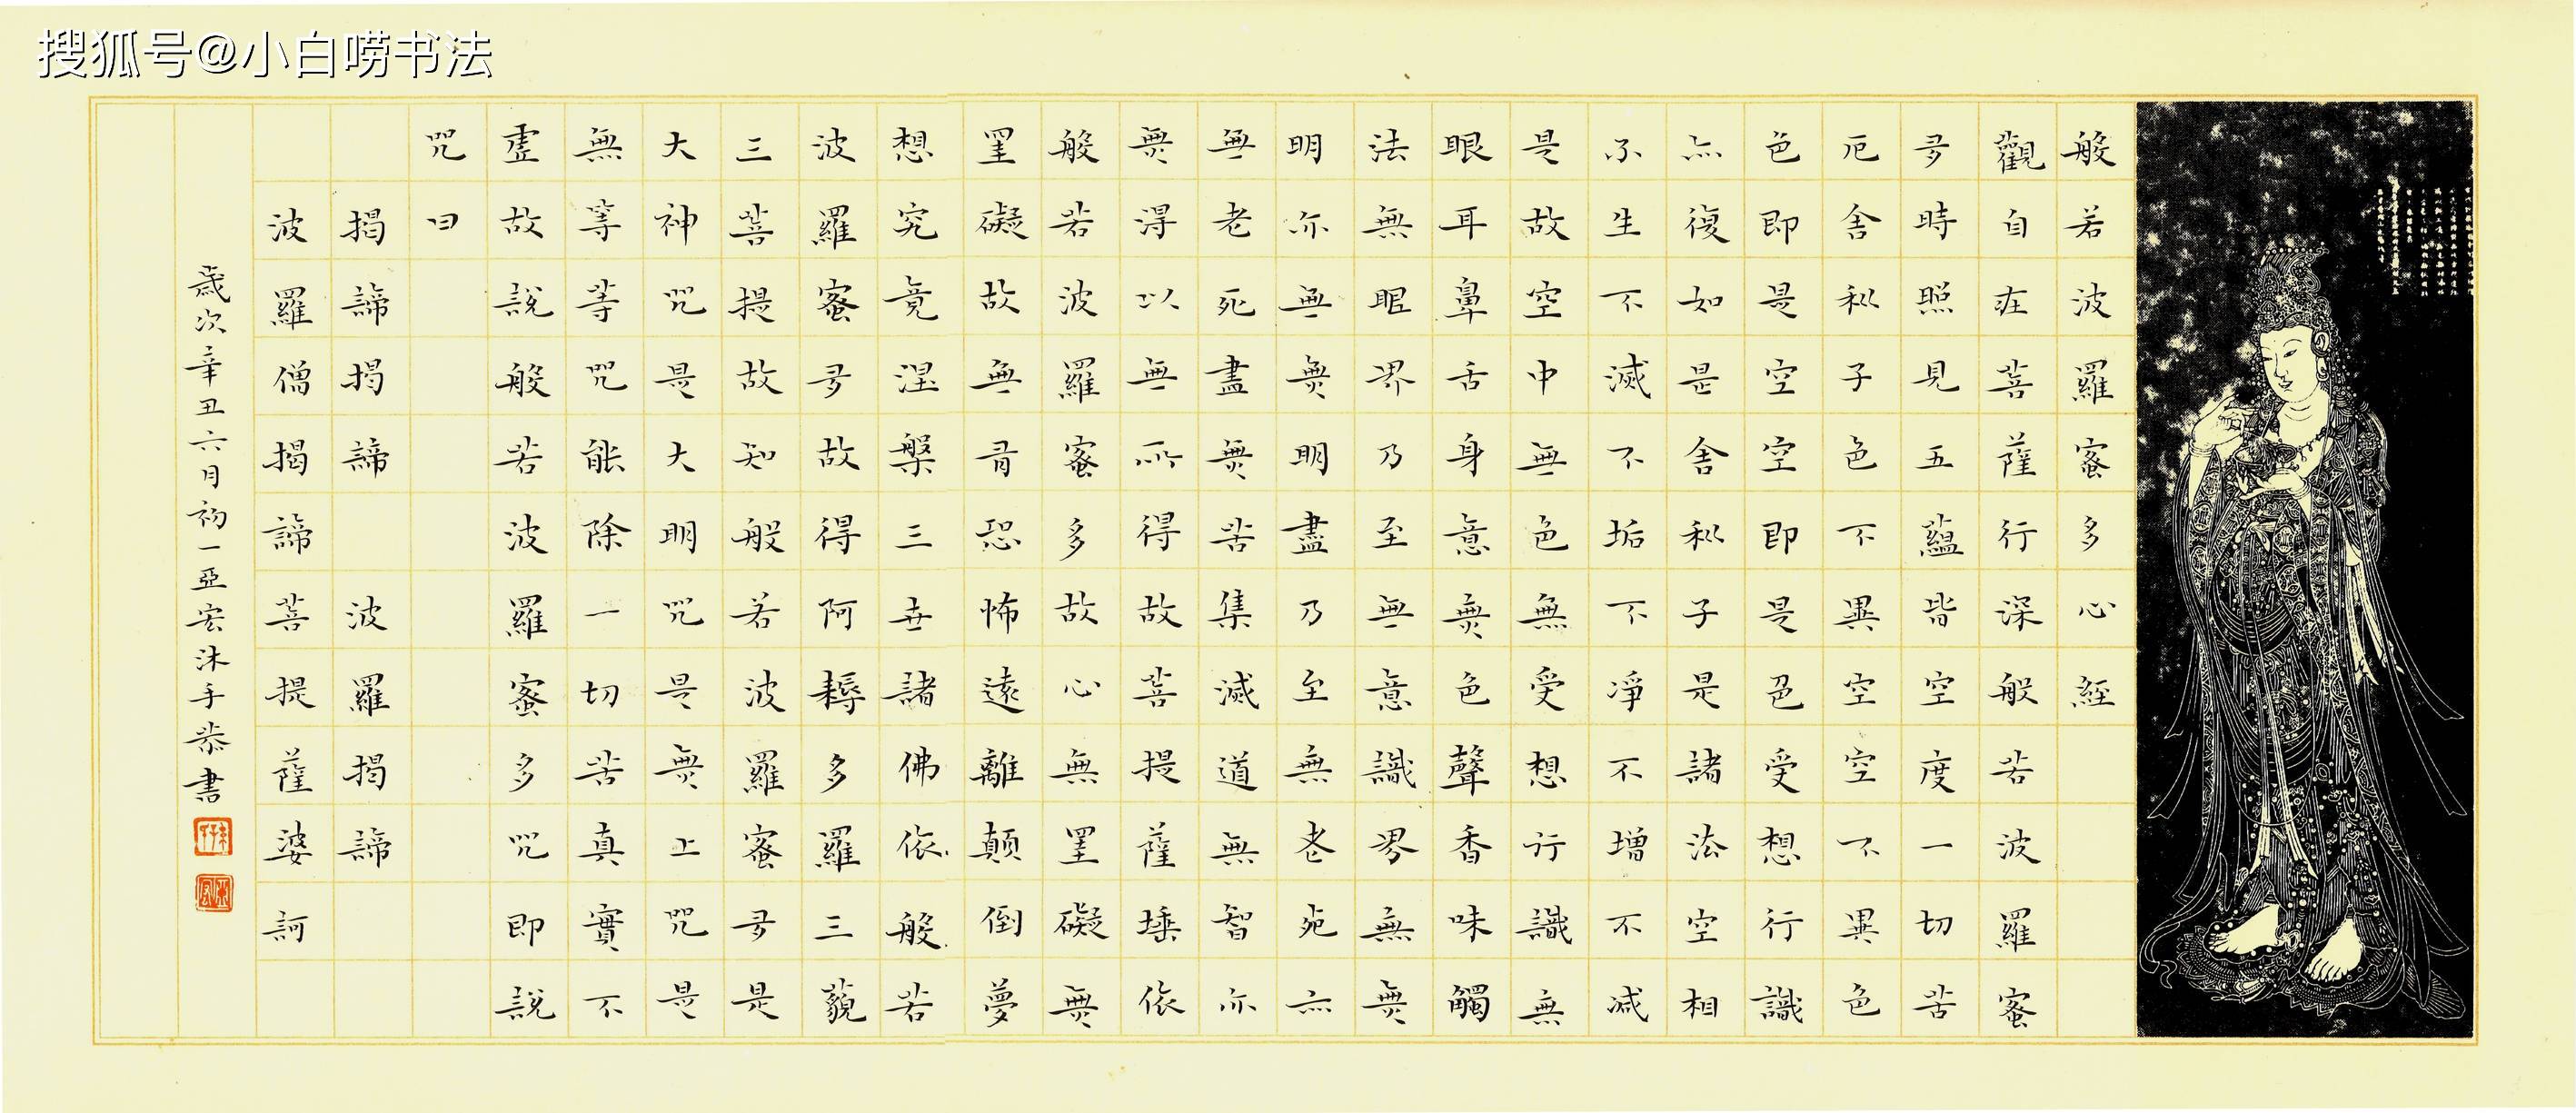 搜狐号@小白唠书法
般若波羅蜜多心經
觀自在菩薩行深般若波羅蜜
多時照見五蘊皆空度一切苦
厄舍利子色不異空空不異色
色即是空空即是色受想行識
亦復如是舍利子是諸法空相
不生不滅不垢不淨不增不減
是故空中無色無受想行識無
眼耳鼻舌身意無色聲香味觸
法無眼界乃至無意識界無無
明亦無無明盡乃至無老死亦
無老死盡無苦集滅道無智亦
無得以無所得故菩提薩埵依
般若波羅蜜多故心無罣礙無
罣礙故無有恐怖遠離顛倒夢
想究竟涅槃三世諸佛依般若
波羅蜜多故得阿耨多羅三藐
三菩提故知般若波羅蜜多是
大神咒是大明咒是無上咒是
無等等咒能除一切苦真實不
虛故說般若波羅蜜多咒即說
咒曰
揭諦揭諦 波羅揭諦
波羅僧揭諦菩提薩婆訶
歲次辛丑六月初一亞宏沐手恭書